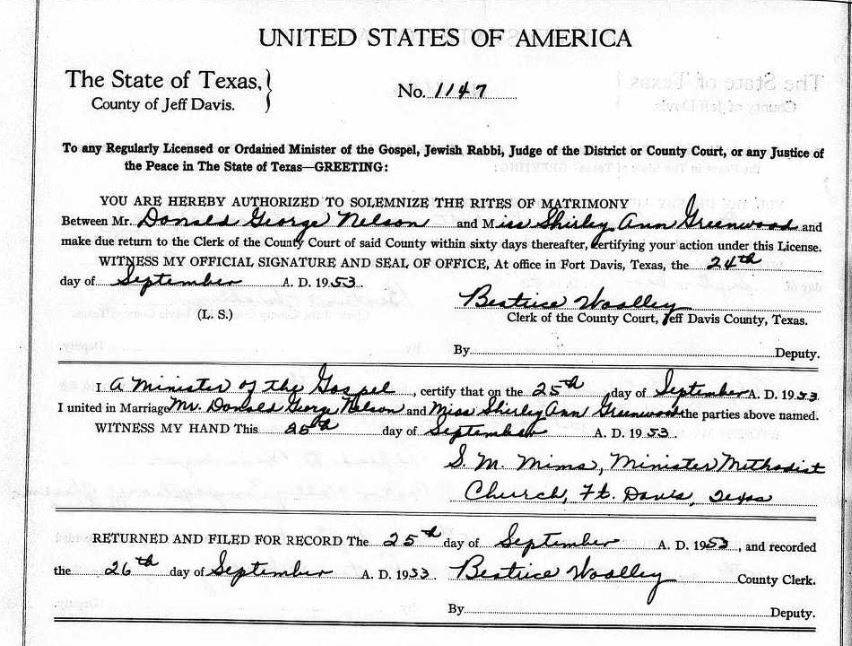 UNITED STATES OF AMERICA
The State of Texas,
County of Jeff Davis.
No. 1147
To any Regularly Licensed or Ordained Minister of the Gospel, Jewish Rabbi, Judge of the District or County Court, or any Justice of
the Peace in The State of Texas—GREETING:
YOU ARE HEREBY AUTHORIZED TO SOLEMNIZE THE RITES OF MATRIMONY
Between Mr. Donald George Nelson and Miss Shirley Ann Greenwood and
make due return to the Clerk of the County Court of said County within sixty days thereafter, certifying your action under this License.
WITNESS MY OFFICIAL SIGNATURE AND SEAL OF OFFICE, At office in Fort Davis, Texas, the 24th
day of September A. D. 1953.
Beatrice Woolley
(L. S.) Clerk of the County Court, Jeff Davis County, Texas.
By Deputy.
I A Minister of the Gospel, certify that on the 25th day of September A. D. 1953
I united in Marriage Mr. Donald George Nelson and Miss Shirley Ann Greenwood the parties above named.
WITNESS MY HAND This 25th day of September A. D. 1953.
S. M. Mims, Minister Methodist
Church, Ft. Davis, Texas
RETURNED AND FILED FOR RECORD The 25th day of September A. D. 1953, and recorded
the 26th day of September A. D. 1953. Beatrice Woolley County Clerk.
By Deputy.